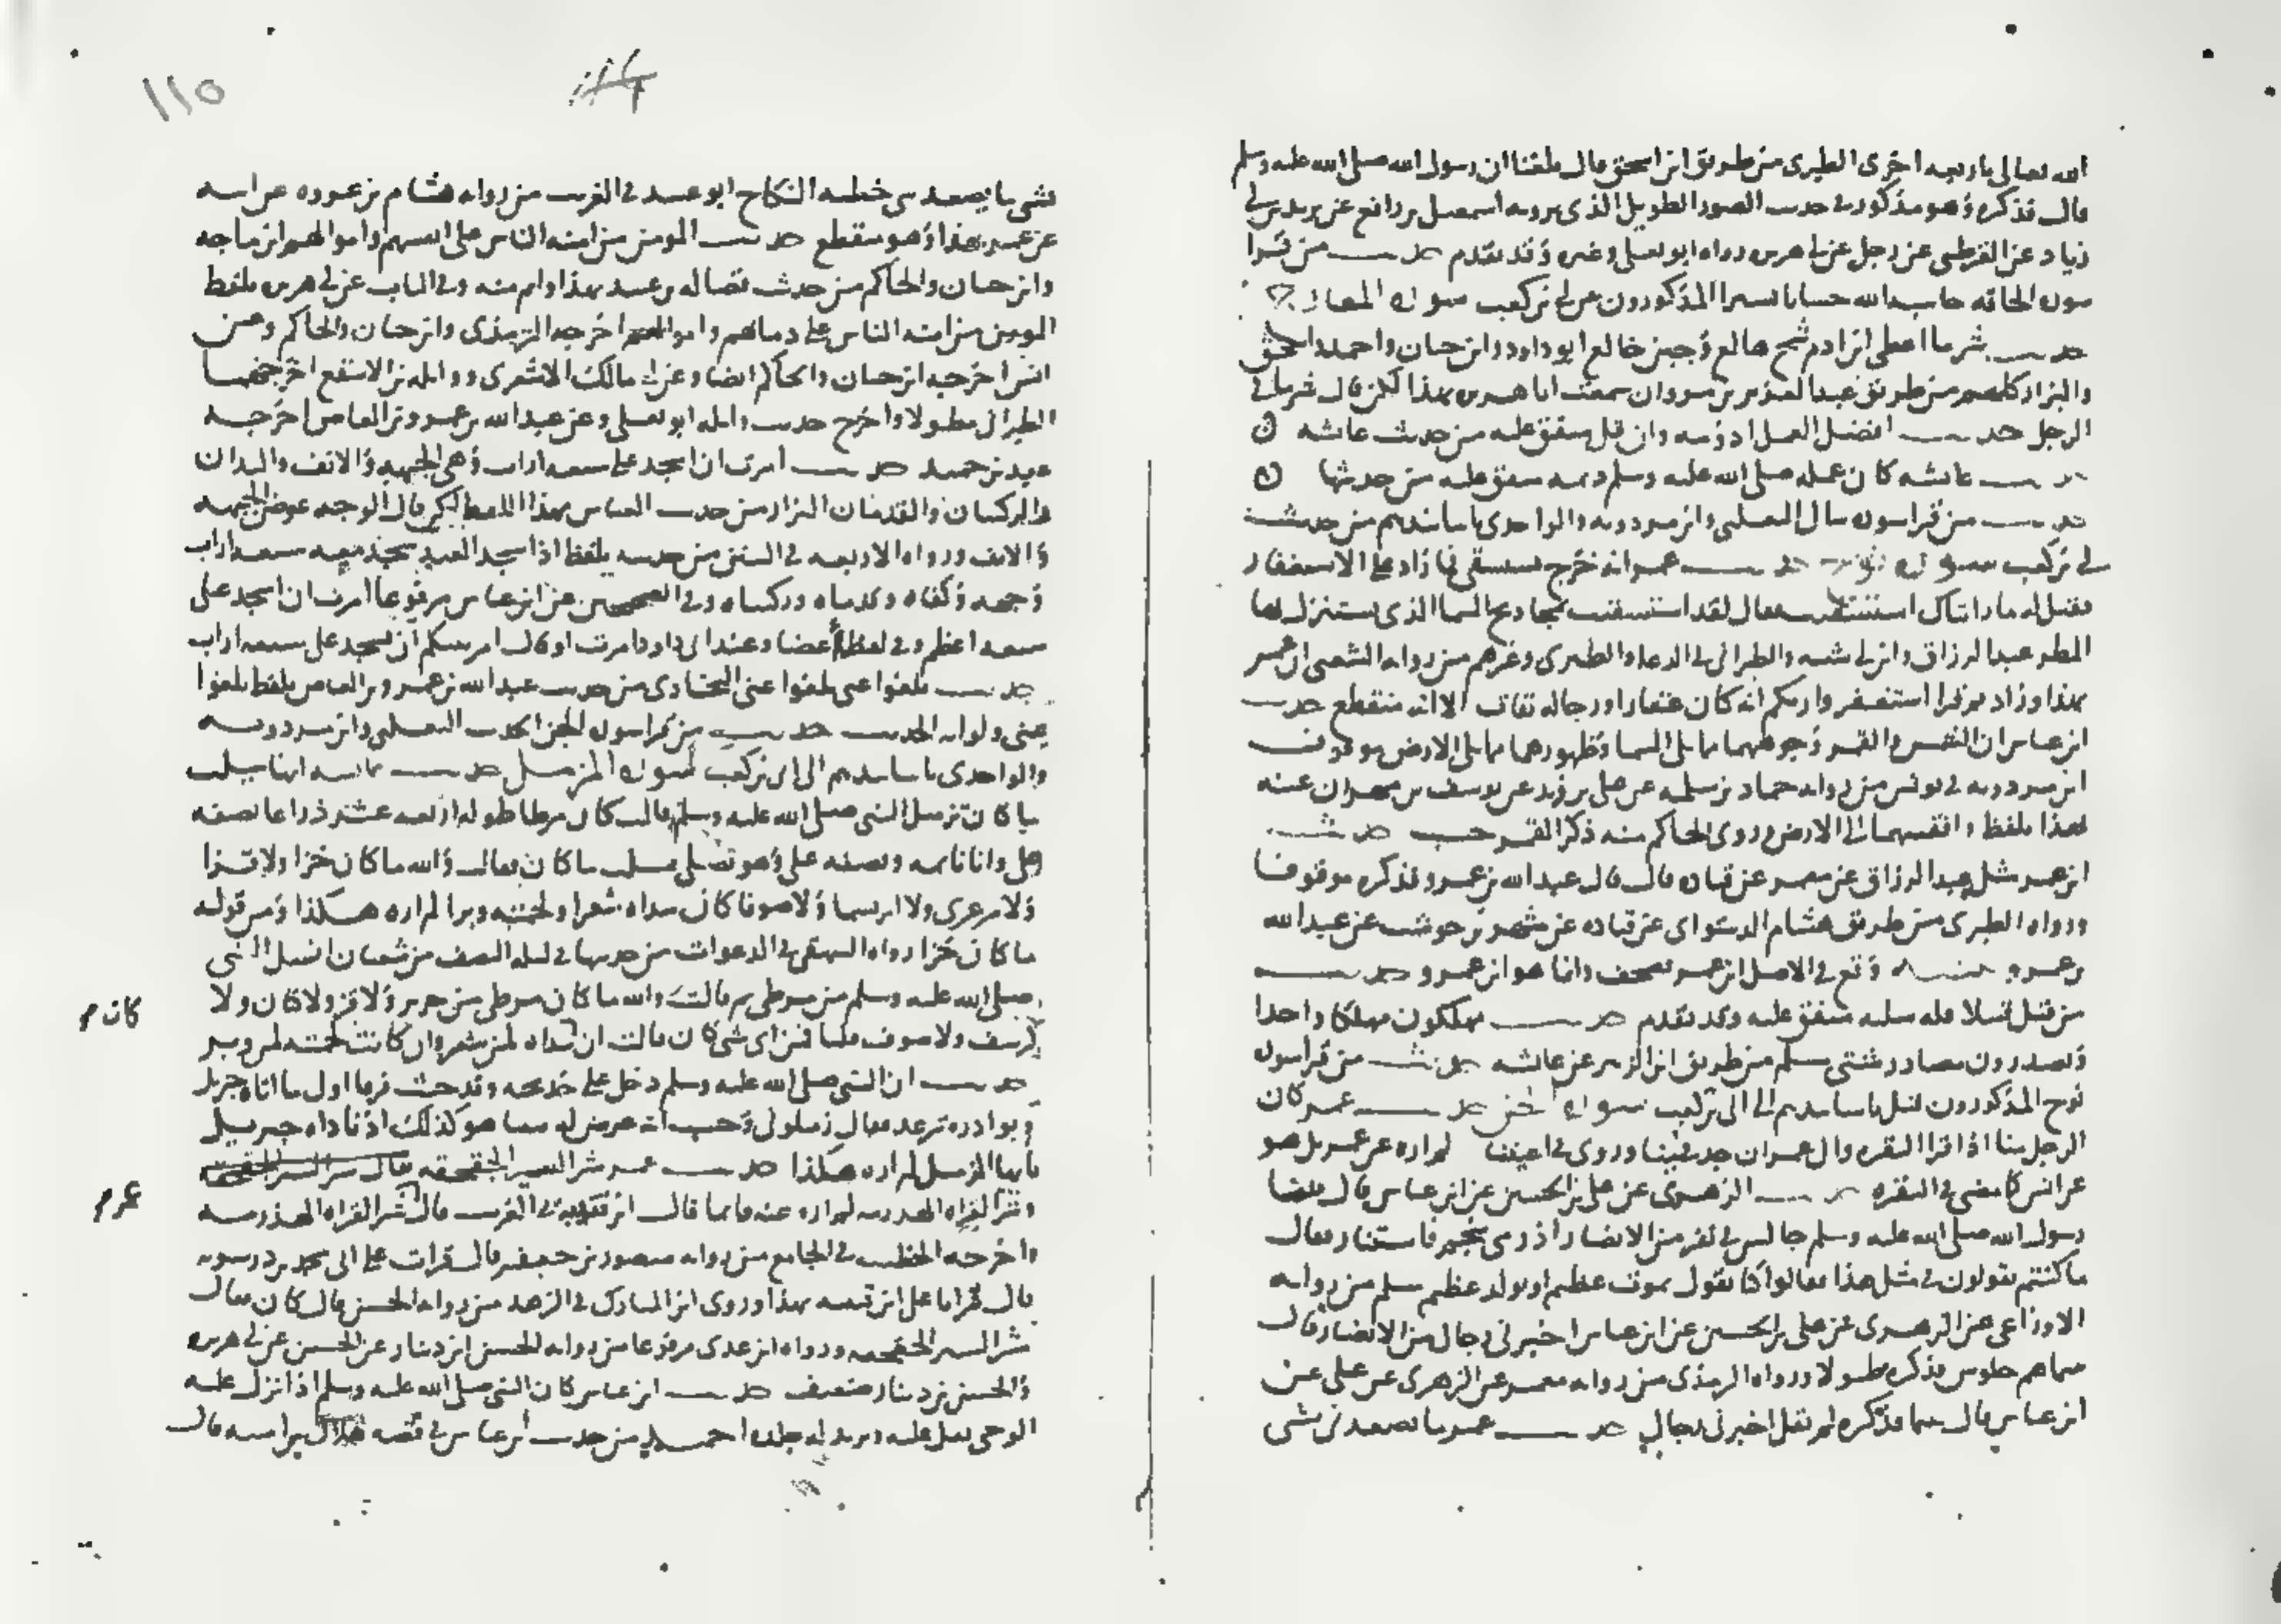 الله تعالى باربعه اخرى الطبرى من طريق ابن اسحق قال بلغنا ان رسول الله صلى الله عليه وسلم
قال فذكره وهو مذكور فى حديث الصور الطويل الذى يرويه اسمعيل بن رافع عن يزيد بن ابى
زياد عن القرظى عن رجل عن ابى هريره رواه ابو يعلى وغيره وقد تقدم حديث من قرا
سورة الحاقه حاسبه الله حسابا يسيرا المذكورون عن ابى بن كعب سورة المعارج
حديث شر ما اعطى ابن ادم شح هالع وجبن خالع ابو داود وابن حبان واحمد واسحق
والبزار كلهم من طريق عبد العزيز بن مروان سمعت ابا هريره بهذا لكن قال شر ما فى
الرجل حديث افضل العمل ادومه وان قل متفق عليه من حديث عائشه
حديث عائشه كان عمله صلى الله عليه وسلم ديمه متفق عليه من حديثها
حديث من قرا سورة سال الثعلبى وابن مردويه والواحدى باسانيدهم من حديث
ابى بن كعب سورة نوح حديث عمر انه خرج يستسقى فما زاد على الاستغفار
فقيل له ما رايناك استسقيت فقال لقد استسقيت بمجاديح السما الذى يستنزل بها
المطر عبد الرزاق وابن ابى شيبه والطبرانى فى الدعا والطبرى وغيرهم من رواية الشعبى ان عمر
بهذا وزاد ثم قرا استغفروا ربكم انه كان غفارا ورجاله ثقات الا انه منقطع حديث
ابن عباس ان الشمس والقمر وجوههما مما يلى السما وظهورهما مما يلى الارض موقوف
ابن مردويه فى يونس من رواية حماد بن سلمه عن على بن زيد عن يوسف بن مهران عنه
بهذا بلفظ واقفيهما الى الارض وروى الحاكم منه ذكر القمر حسب حديث
ابن عمر مثله عبد الرزاق عن معمر عن قتاده قال قال عبد الله بن عمرو فذكره موقوفا
ورواه الطبرى من طريق هشام الدستواى عن قتاده عن شهر بن حوشب عن عبد الله
بن عمرو وقع فى الاصل ابن عمر تصحف وانما هو ابن عمرو حديث
من قتل قتيلا فله سلبه متفق عليه وقد تقدم حديث يهلكون مهلكا واحدا
ويصدرون مصادر شتى مسلم من طريق ابن الزبير عن عائشه حديث من قرا سورة
نوح المذكورون قبل باسانيدهم الى ابى بن كعب سورة الجن حديث عمر كان
الرجل منا اذا قرا البقره وال عمران جد فينا وروى فى اعيننا لم اره عن عمر بل هو
عن انس كما مضى فى البقره حديث الزهرى عن على بن الحسين عن ابن عباس قال بينما
رسول الله صلى الله عليه وسلم جالس فى نفر من الانصار اذ رمى بنجم فاستنار فقال
ما كنتم تقولون فى مثل هذا فقالوا كنا نقول يموت عظيم او يولد عظيم مسلم من رواية
الاوزاعى عن الزهرى عن على بن الحسين عن ابن عباس اخبرنى رجال من الانصار قال
بينما هم جلوس فذكره مطولا ورواه الترمذى من رواية معمر عن الزهرى عن على عن
ابن عباس قال بينما فذكره لم يقل اخبرنى رجال حديث عمر ما تصعدنى شى
١١٥
شى ما يصعدنى خطبه النكاح ابو عبيد فى الغريب من رواية هشام بن عروه عن ابيه
عن عمر بهذا وهو منقطع حديث المومن من امنه الناس على انفسهم واموالهم ابن ماجه
وابن حبان والحاكم من حديث فضاله بن عبيد بهذا واتم منه وفى الباب عن ابى هريره بلفظ
المومن من امنه الناس على دمائهم واموالهم اخرجه الترمذى وابن حبان والحاكم وعن
انس اخرجه ابن حبان والحاكم ايضا وعن ابى مالك الاشعرى وواثله بن الاسقع اخرجهما
الطبرانى مطولا واخرج حديث واثله ابو يعلى وعن عبد الله بن عمرو بن العاص اخرجه
عبد بن حميد حديث امرت ان اسجد على سبعه اراب وهى الجبهه والانف واليدان
والركبتان والقدمان البزار من حديث العباس بهذا اللفظ لكن قال الوجه عوض الجبهه
والانف ورواه الاربعه فى السنن من حديثه بلفظ اذا سجد العبد سجد معه سبعه اراب
وجهه وكفاه وقدماه وركبتاه وفى الصحيحين عن ابن عباس مرفوعا امرت ان اسجد على
سبعه اعظم وفى لفظ اعضا وعند ابى داود امرت او قال امر نبيكم ان يسجد على سبعه اراب
حديث بلغوا عنى بلغوا عنى البخارى من حديث عبد الله بن عمرو بن العاص بلفظ بلغوا
عنى ولو ايه الحديث حديث من قرا سورة الجن الحديث الثعلبى وابن مردويه
والواحدى باسانيدهم الى ابى بن كعب سورة المزمل حديث عائشه انها سئلت
ما كان تزمل النبى صلى الله عليه وسلم قالت كان مرطا طوله اربعه عشر ذراعا نصفه
على وانا نائمه ونصفه عليه وهو يصلى فسئلت ما كان فقالت والله ما كان خزا ولا قزا
ولا مرعزى ولا ابريسما ولا صوفا كان سداه شعرا ولحمته وبرا لم اره هكذا ومن قوله
ما كان خزا رواه البيهقى فى الدعوات من حديثها فى ليله النصف من شعبان انسل النبى
صلى الله عليه وسلم من مرطى ثم قالت والله ما كان مرطى من حرير ولا قز ولا كتان ولا
كرسف ولا صوف قلنا فمن اى شى كان قالت ان كان سداه لمن شعر وان كانت لحمته لمن وبر
كان م
حديث ان النبى صلى الله عليه وسلم دخل على خديجه وقد جئث فرقا اول ما اتاه جبريل
وبوادره ترعد فقال زملونى وحسب انه عرض له فبينا هو كذلك اذ ناداه جبريل
يا ايها المزمل لم اره هكذا حديث عمر شر السير الحقحقه
وشر القراه الهذرمه لم اره عنه وانما قال ابن قتيبه فى الغريب قال شر القراه الهذرمه
عمر م
واخرجه الخطيب فى الجامع من رواية منصور بن جعفر قال قرات على ابى محمد بن درستويه
قال قرانا على ابن قتيبه بهذا وروى ابن المبارك فى الزهد من رواية الحسن قال كان يقال
شر السير الحقحقه ورواه ابن عدى مرفوعا من رواية الحسن ابن دينار عن الحسن عن ابى هريره
والحسن بن دينار ضعيف حديث ابن عباس كان النبى صلى الله عليه وسلم اذا نزل عليه
الوحى ثقل عليه وتربد له جلده احمد من حديث ابن عباس فى قصه هلال بن اميه قال